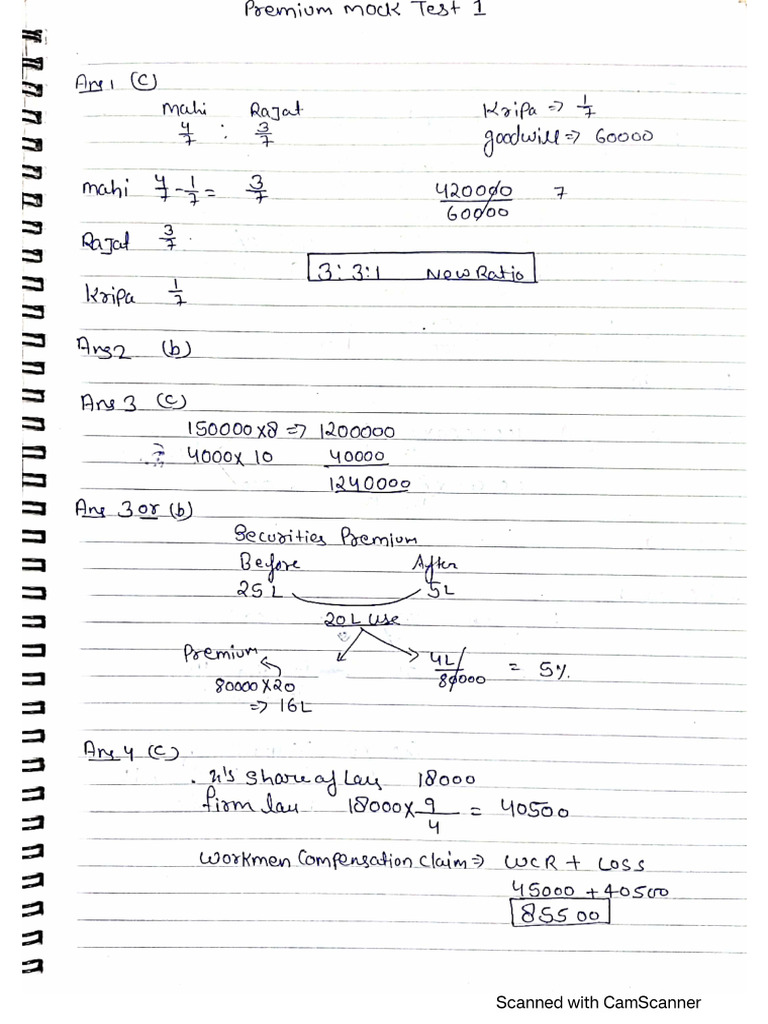 Premium Mock Test 1
Ans 1 (c)
Mahi Rajat Kripa ⇒ 1/7
4/7 : 3/7 goodwill ⇒ 60000
Mahi 4/7 - 1/7 = 3/7 420000/60000 7
Rajat 3/7
3:3:1 New Ratio
Kripa 1/7
Ans 2 (b)
Ans 3 (c)
150000 x 8 ⇒ 1200000
4000 x 10 40000
1240000
Ans 3 or (b)
Securities Premium
Before After
25 L 5L
20 L use
Premium 4L/80000 = 5%
80000 x 20
⇒ 16L
Ans 4 (c)
x's share of Loss 18000
firm loss 18000 x 9/4 = 40500
Workmen Compensation Claim ⇒ WCR + LOSS
45000 + 40500
85500
Scanned with CamScanner